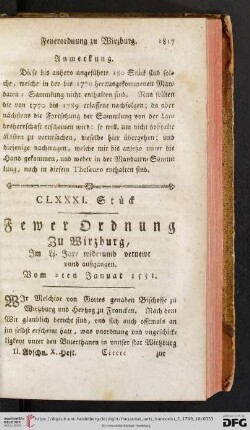 Feuerordnung zu Wirzburg. 1817
Anmerkung.
Diese bis anhero angeführte 180 Stück sind sol-
che, welche in der bis 1770 herausgekommenen Man-
daten: Sammlung nicht enthalten sind. Nun sollten
die von 1770 bis 1789 erlassene nachfolgen; da aber
nächstens die Fortsetzung der Sammlung von der Lan-
desherrschaft erscheinen wird; so will, um nicht doppelte
Kösten zu verursachen, dieselbe hier übergehen; und
diejenige nachtragen, welche mir bis anjezo unter die
Hand gekommen, und weder in der Mandaten Samm-
lung, noch in diesem Thesauro enthalten sind.
CLXXXI. Stück
Fewer Ordnung
Zu Wirtzburg,
Im Jare widerumb vernewt
vund ausgangen.
Vom 2ten Januar 1551.
Wir Melchior von Gottes genaden Bischoffe zu
Wirtzburg vnd Hertzog zu Francken. Nach dem
Wir glaublich bericht sind, vnd sich auch offtmals an
jm selbst erscheint hatt, was vnordnung vnd vngeschick-
ligkeyt vnter den Innerthanen in vnnser stat Wirtzburg
II. Abschn. X. Heft. zur